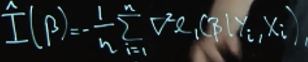 Î(β) = -1/n ∑_{i=1}^{n} ∇²ℓ₁(β|Y_i, X_i),